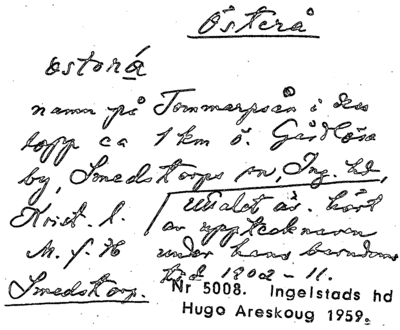 Österå
namn på Tommarpsån i dess
lopp ca 1 km ö. Gårdlösa
by, Smedstorps sn, Ing. hd,
Krist. l.
Uttalet är hört
av upptecknaren
M. f. H
under hans barndoms
tid 1902-11.
Smedstorp.
Nr 5008. Ingelstads hd
Hugo Areskoug 1959.